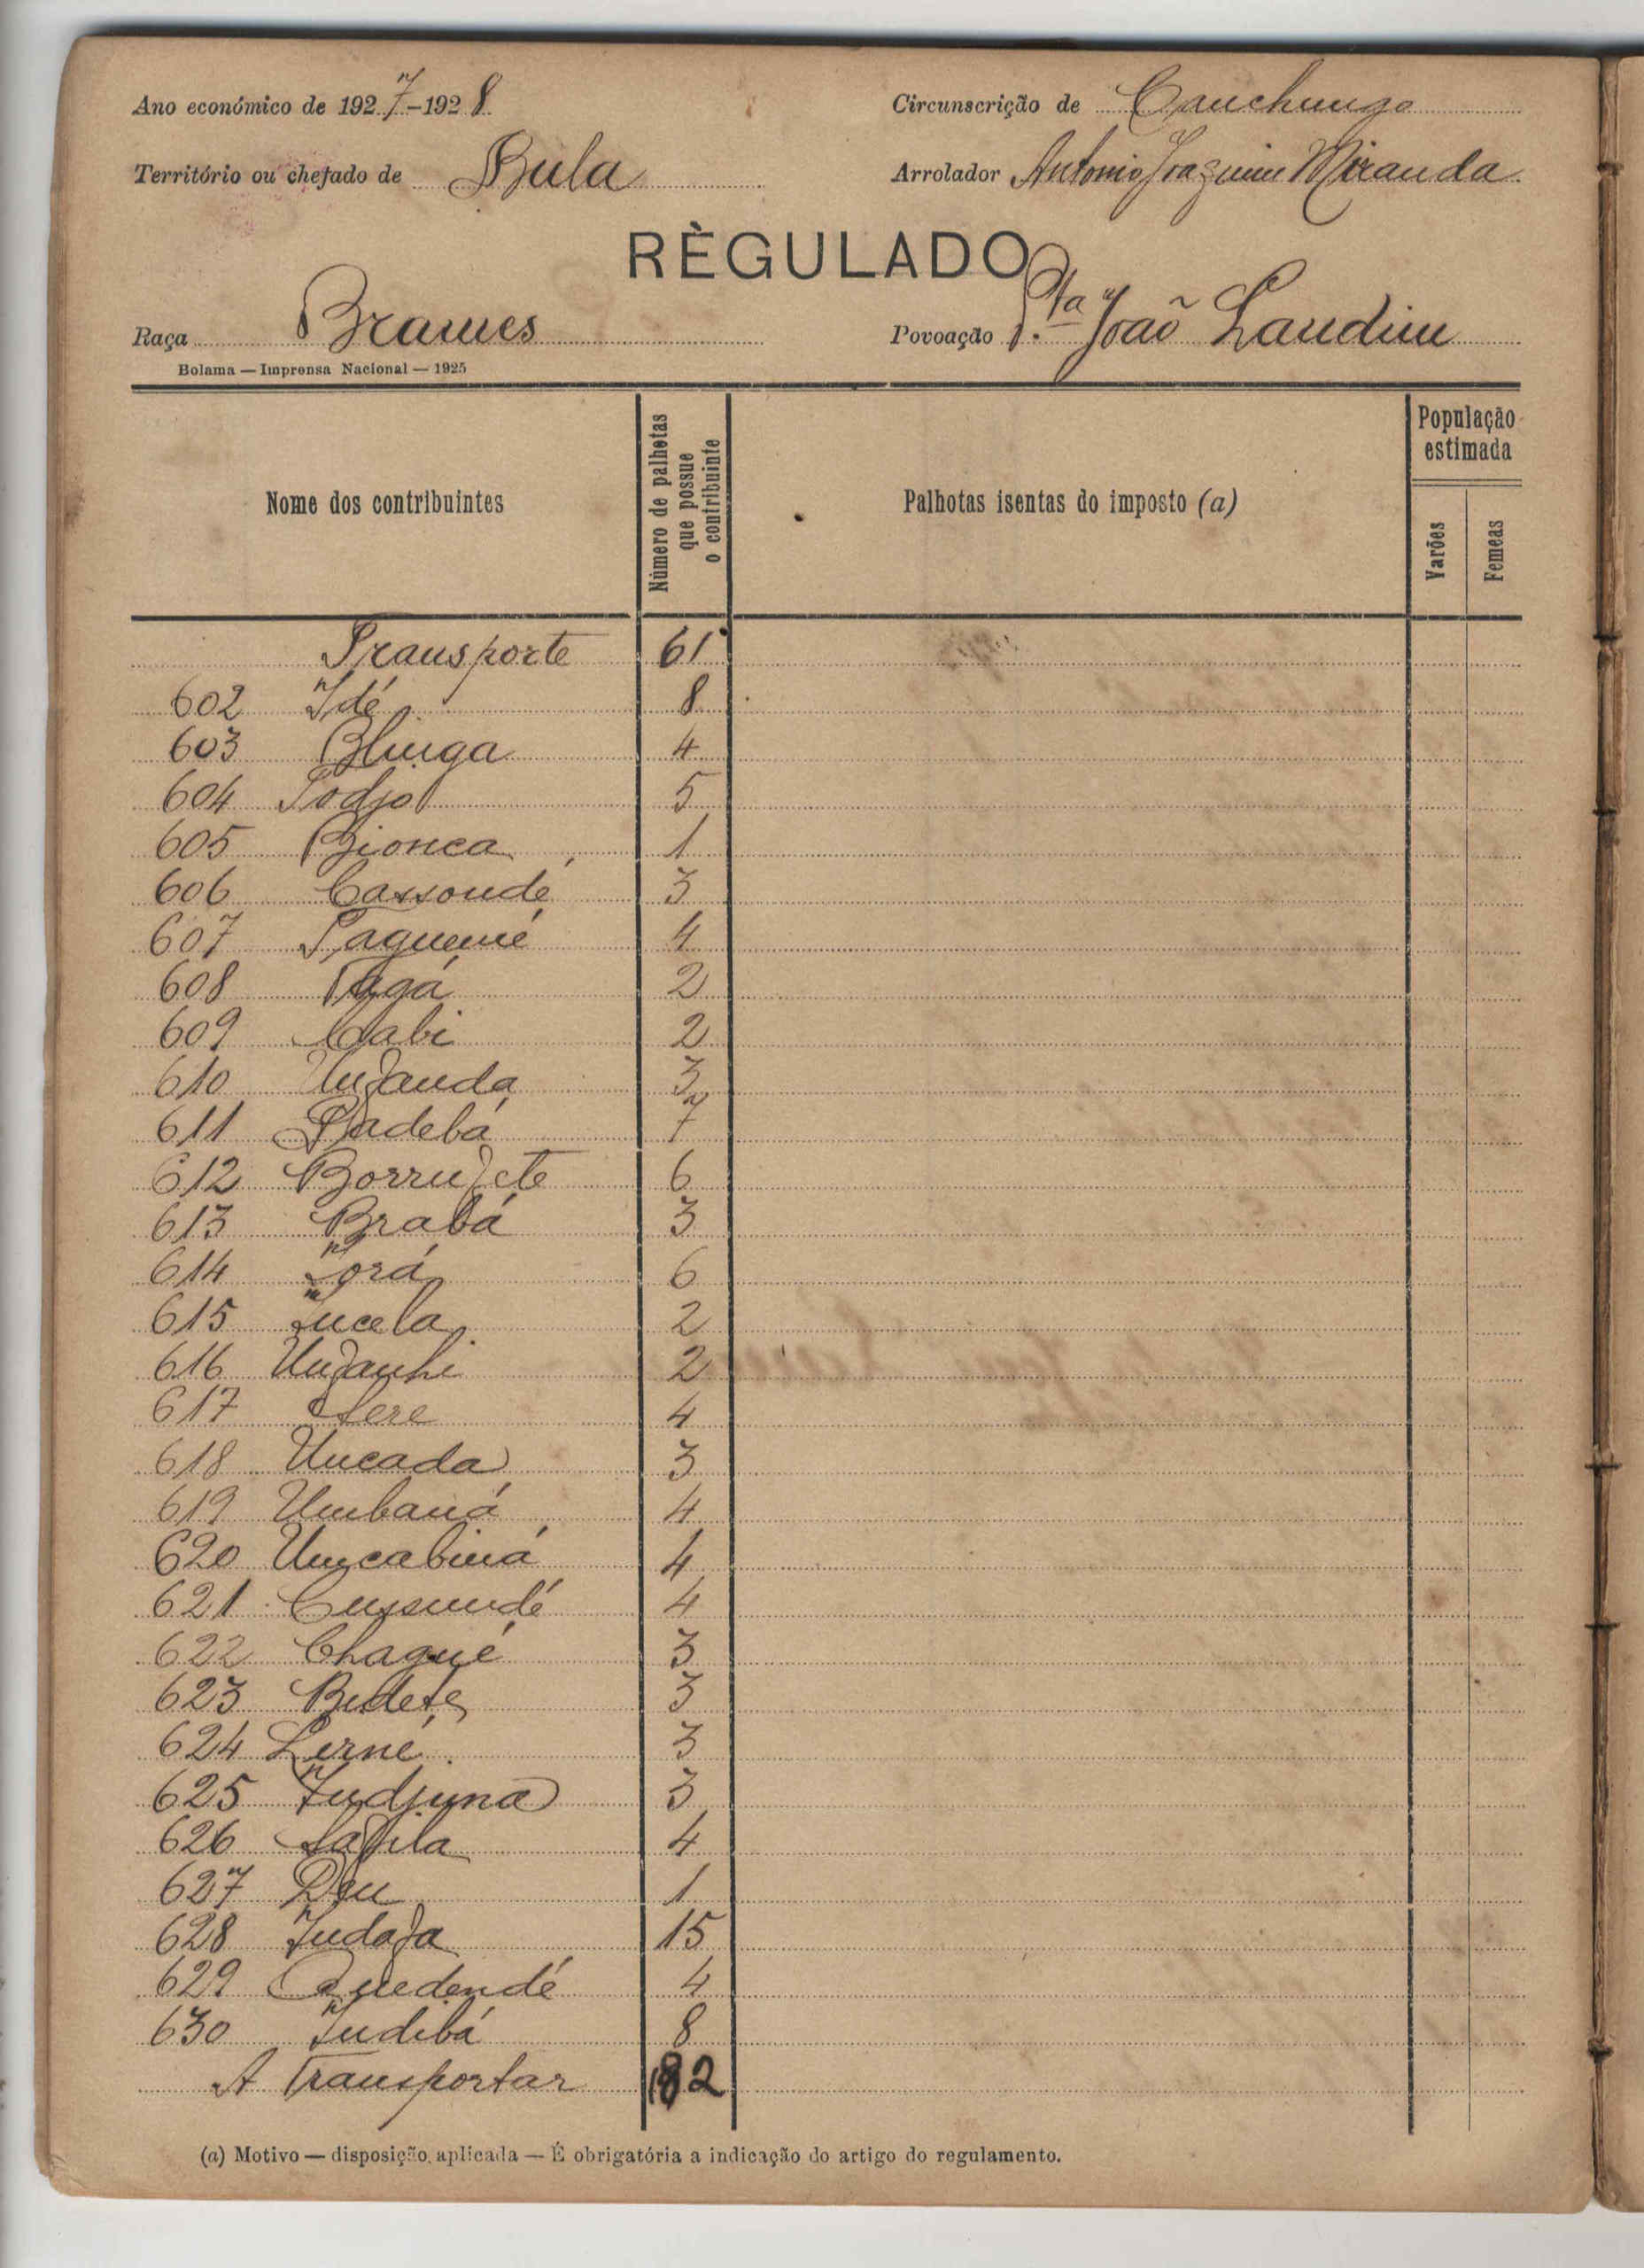 Ano económico de 1927-1928
Circunscrição de Canchungo
Território ou chefado de Bula
Arrolador Antonio Joaquim Miranda
RÈGULADO
Raça Brames
Povoação P.ta João Landim
Bolama — Imprensa Nacional — 1925
Nome dos contribuintes
Número de palhotas que possue o contribuinte
Palhotas isentas do imposto (a)
População estimada
Varões
Femeas
Transporte 61
602 Idé 8
603 Blunga 4
604 Todjo 5
605 Bionca 1
606 Cassondé 3
607 Taguemé 4
608 Tagá 2
609 Cabi 2
610 Unfanda 3
611 Padebá 7
612 Borrufete 6
613 Brabá 3
614 Forá 6
615 Incela 2
616 Unfanhi 2
617 Sere 4
618 Uncada 3
619 Umbaná 4
620 Umcabiná 4
621 Cussundé 4
622 Chagué 3
623 Budete 3
624 Lerné 3
625 Indjuna 3
626 Safila 4
627 Deu 1
628 Indafa 15
629 Quedendé 4
630 Indibá 8
A Transportar 182
(a) Motivo — disposição aplicada — É obrigatória a indicação do artigo do regulamento.